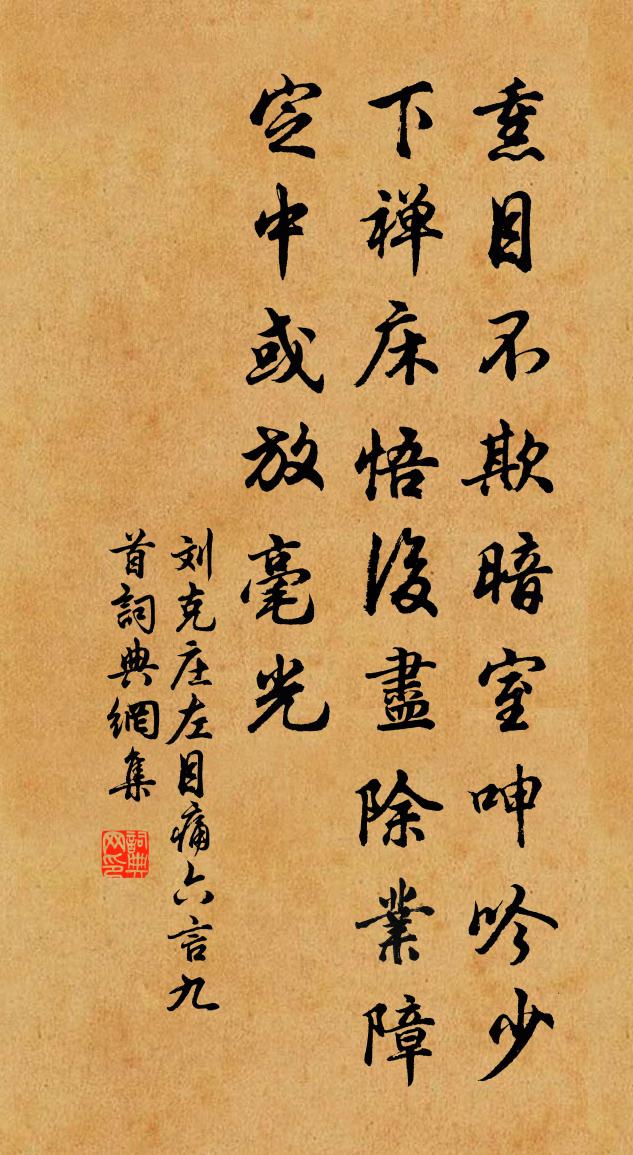 熏目不欺暗室呻吟少
下禅床悟後盡除業障
定中或放毫光
刘克庄左目痛六言九
首詞典網集
詞典网印